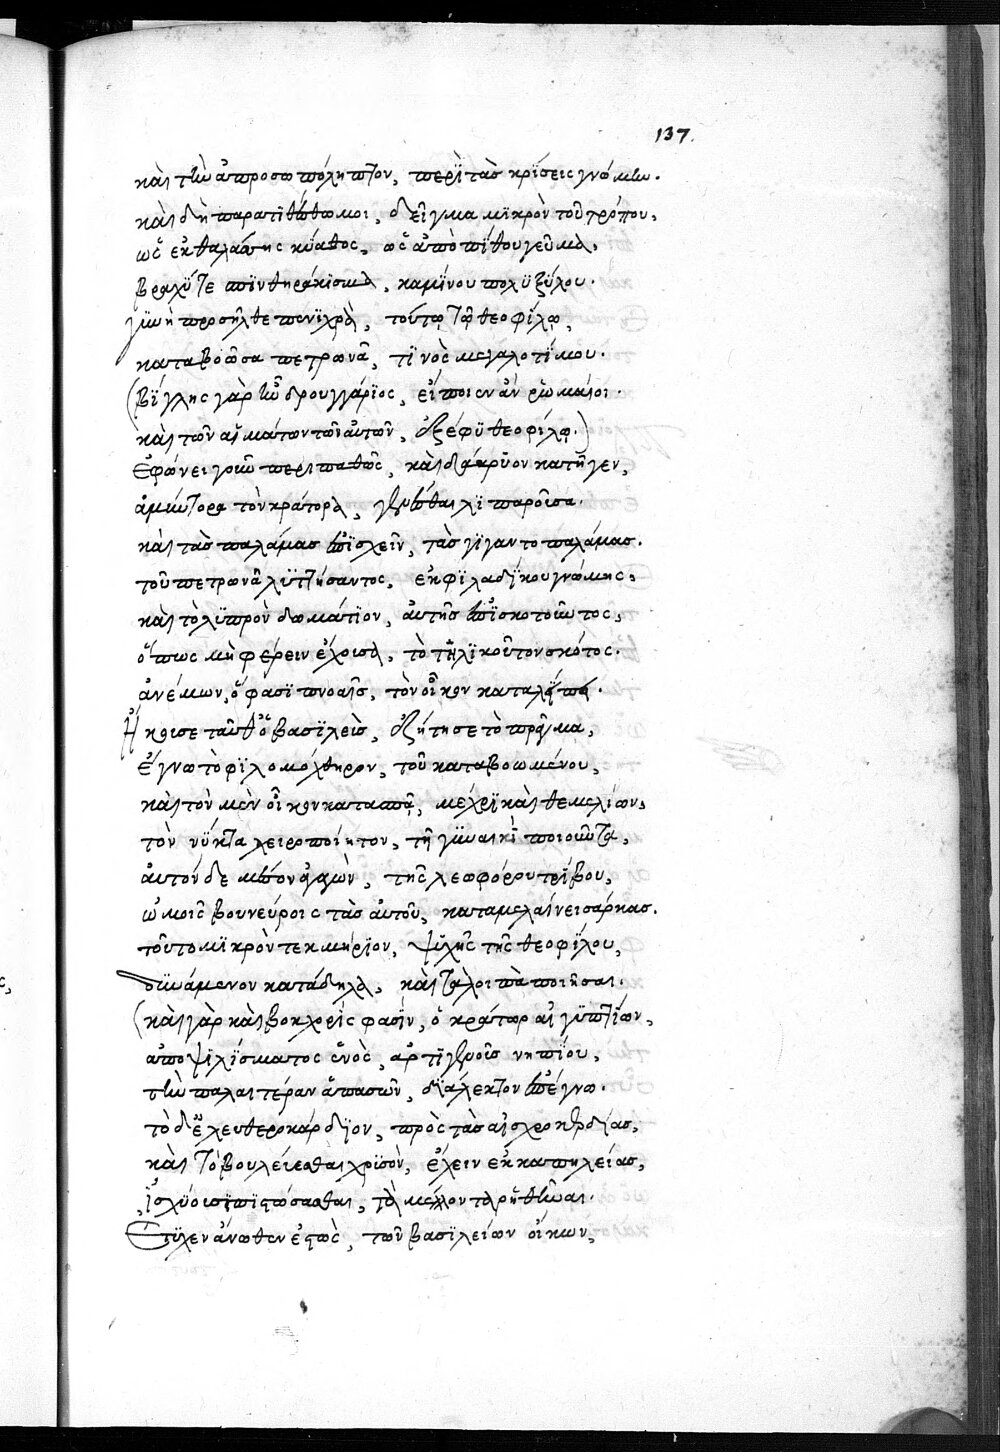 137.
καὶ τὴν ἀπροσωπόληπτον, περὶ τὰς κρίσεις γνώμην.
καὶ δὴ παρατιθέσθω μοι, δεῖγμα μικρὸν τοῦ τρόπου,
ὡς ἐκ θαλάσσης κύαθος, ὡς ἀπὸ πίθου γεῦμα.
βραχύ τε σπινθηράκισμα, καμίνου πολυξύλου.
γυνὴ προσῆλθε πενιχρὰ, τούτῳ τῷ θεοφίλῳ,
καταβοῶσα πετρωνᾶ, τινὸς μεγαλοτίμου.
(βίγλης γὰρ ἦν δρουγγάριος, εἴποιεν ἂν ῥωμαῖοι.
καὶ τῶν αἱμάτων τῶν αὐτῶν, ἐξέφυ θεοφίλῳ.)
ἐφώνει γοῦν περιπαθῶς, καὶ δάκρυον κατῆγεν,
ἀμύντορα τὸν κράτορα, γενέσθαι λιπαροῦσα.
καὶ τὰς παλάμας ἐπισχεῖν, τὰς γιγαντοπαλάμας.
τοῦ πετρωνᾶ λυττήσαντος, ἐκ φιλαδίκου γνώμης,
καὶ τὸ λυπρὸν δωμάτιον, αὐτῆς ἐπισκοτοῦντος,
ὅπως μὴ φέρειν ἔχουσα, τὸ τηλικοῦτον σκότος.
ἀνέμων, ὅ φασι πνοαῖς, τὸν οἶκον καταλείπῃ.
Ἤκουσε ταῦθ' ὁ βασιλεὺς, ἐζήτησε τὸ πρᾶγμα,
ἔγνω τὸ φιλομόχθηρον, τοῦ καταβοωμένου,
καὶ τὸν μὲν οἶκον κατασπᾷ, μέχρι καὶ θεμελίων,
τὸν νύκτα χειροποίητον, τῇ γυναικὶ ποιοῦντα,
αὐτόν δε μέσον ἀγαγὼν, τῆς λεωφόρου τρίβου,
ὠμοῖς βουνεύροις τὰς αὐτοῦ, καταμελαίνει σάρκας.
τοῦτο μικρὸν τεκμήριον, ψυχῆς τῆς θεοφίλου,
δυνάμενον κατάδηλα, καὶ τἄλοιπα ποιῆσαι.
(καὶ γὰρ καὶ βοκχορίς φασὶν, ὁ κράτωρ αἰγυπτίων,
ἀποψιλίσματος ἑνὸς, ἀρτιγενοῦς νηπίου,
τὴν παλαιτέραν ἁπασῶν, διάλεκτον ἐπέγνω.
τὸ δ' ἐλευθεροκάρδιον, πρὸς τὰς αἰσχροκερδείας,
καὶ τὸ βουλεύεσθαι χρυσὸν, ἔχειν ἐκ καπηλείας,
ἰσχύσει πιστώσασθαι, τὸ μέλλον τὸ ῥηθῆναι.
Ἔτυχεν ἄνωθεν ἑστὼς, τῶν βασιλείων οἴκων,